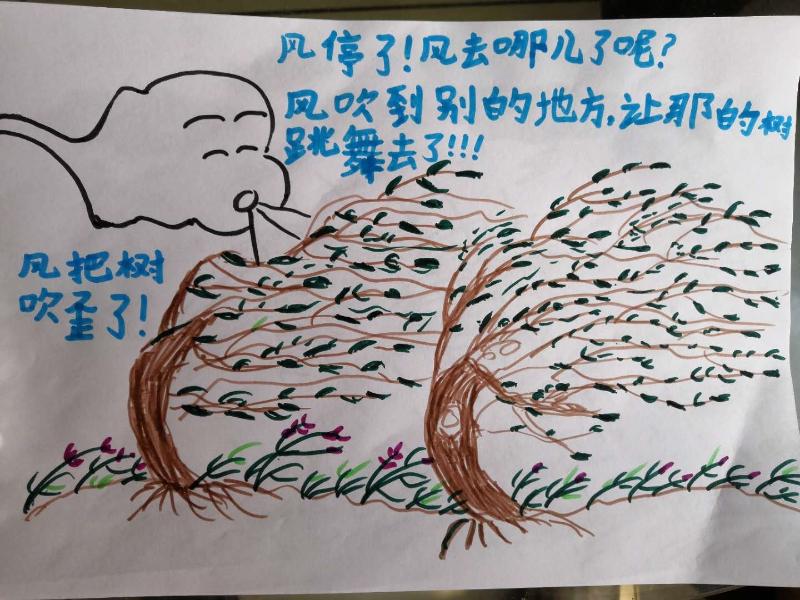 风停了!风去哪儿了呢?
风吹到别的地方,让那的树
跳舞去了!!!
风把树
吹歪了!